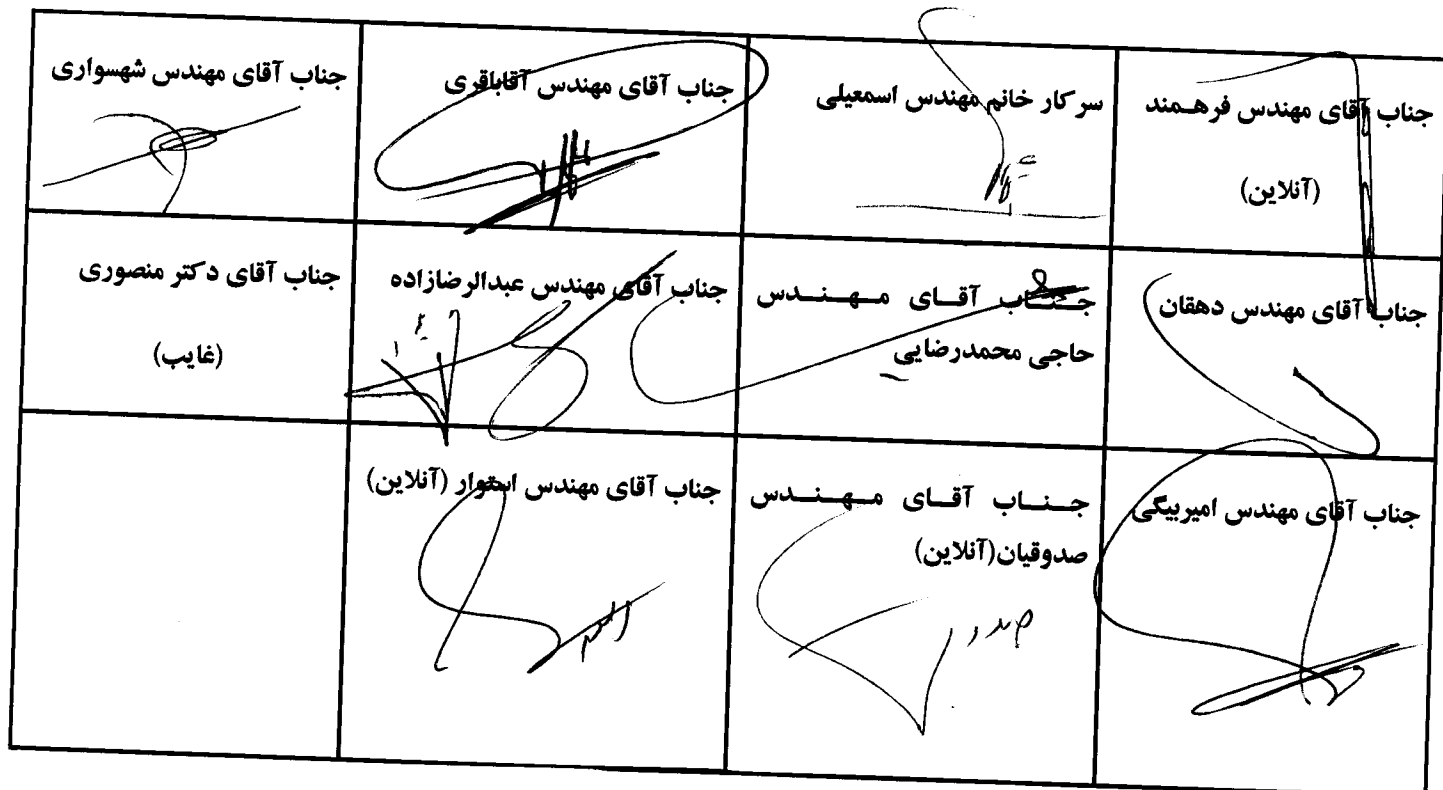 جناب آقای مهندس فرهـمند
(آنلاین)
سرکار خانم مهندس اسمعیلی
جناب آقای مهندس آقاباقری
جناب آقای مهندس شهسواری
جناب آقای مهندس دهقان
جـنـاب آقـای مـهـنـدس
حاجی محمدرضایی
جناب آقای مهندس عبدالرضازاده
جناب آقای دکتر منصوری
(غایب)
جناب آقای مهندس امیربیگی
جـنـاب آقـای مـهـنـدس
صدوقیان(آنلاین)
جناب آقای مهندس استوار (آنلاین)